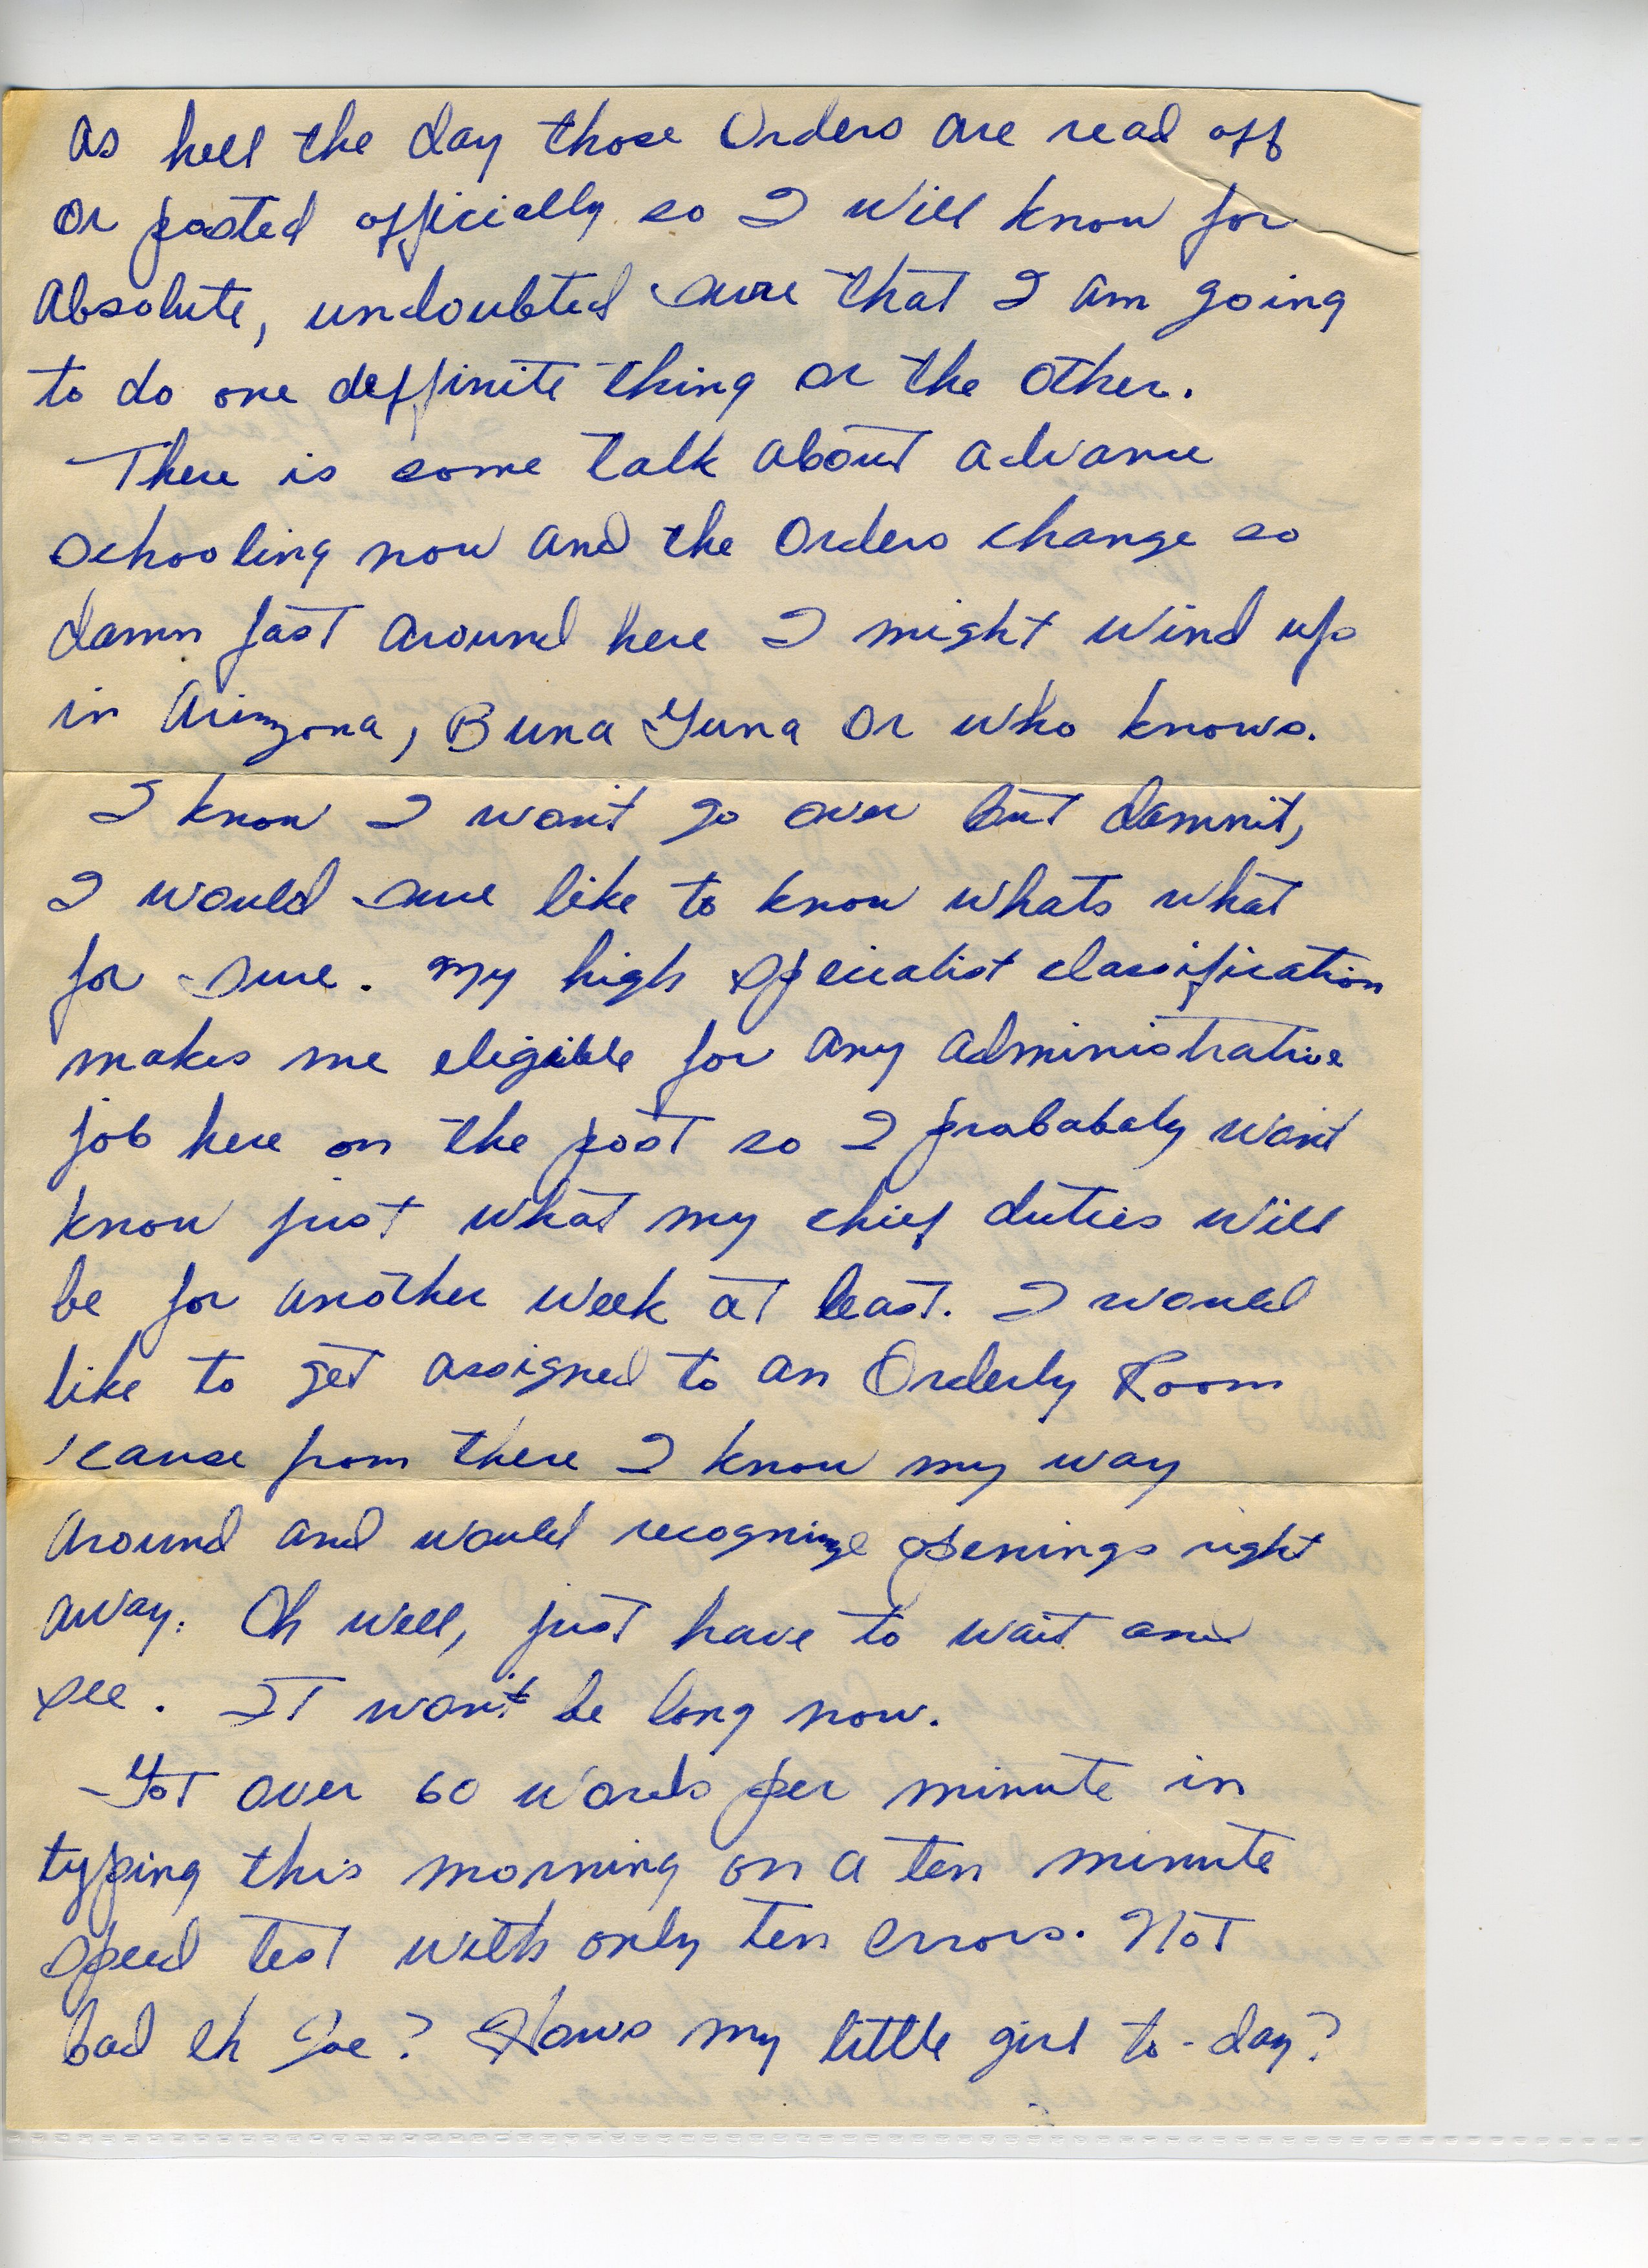 as hell the day those Orders are read off
or posted officially so I will know for
absolute, undoubted sure that I am going
to do one deffinite thing or the other.
There is some talk about advance
schooling now and the Orders change so
damn fast around here I might wind up
in Arizona, Buna Guna or who knows.
I know I won't go over but damnit,
I would sure like to know whats what
for sure. My high specialist classification
makes me eligible for any administrative
job here on the post so I probabaly won't
know just what my chief duties will
be for another week at least. I would
like to get assigned to an Orderly Room
'cause from there I know my way
around and would recognize openings right
away. Oh well, just have to wait and
see. It won't be long now.
Got over 60 words per minute in
typing this morning on a ten minute
speed test with only ten errors. Not
bad eh Joe? Hows my little girl to-day?